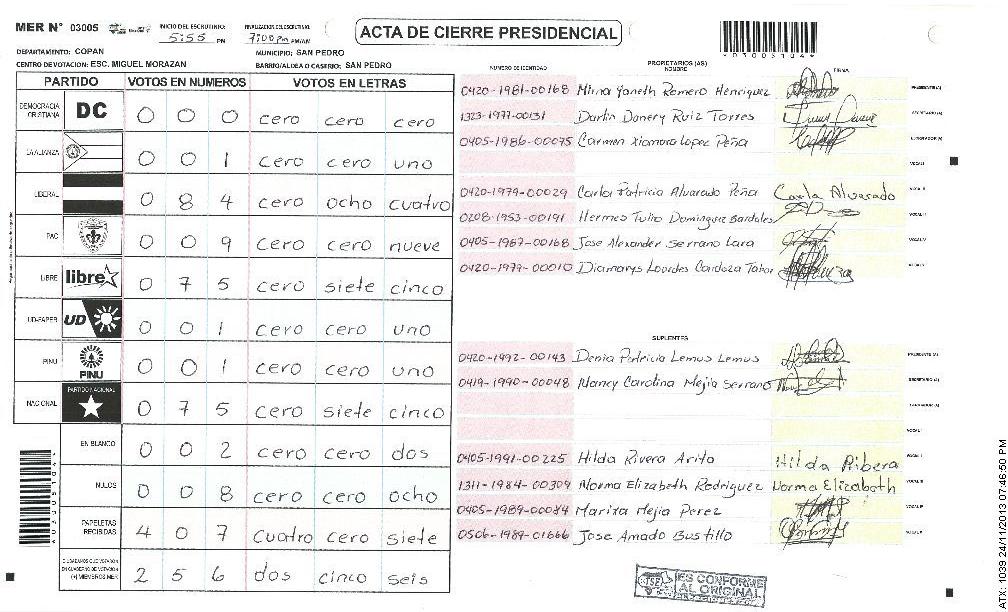 MER N° 03005
INICIO DEL ESCRUTINIO: 5:55 PM
FINALIZACION DEL ESCRUTINIO: 7:00 pm PM/AM
ACTA DE CIERRE PRESIDENCIAL
*03005104*
DEPARTAMENTO: COPAN
MUNICIPIO: SAN PEDRO
CENTRO DE VOTACION: ESC. MIGUEL MORAZAN
BARRIO/ALDEA O CASERIO: SAN PEDRO
PARTIDO VOTOS EN NUMEROS VOTOS EN LETRAS
DEMOCRACIA CRISTIANA DC 0 0 0 cero cero cero
LA ALIANZA 0 0 1 cero cero uno
LIBERAL 0 8 4 cero ocho cuatro
PAC 0 0 9 cero cero nueve
LIBRE libre 0 7 5 cero siete cinco
UD-FAPER UD 0 0 1 cero cero uno
PINU PINU 0 0 1 cero cero uno
NACIONAL PARTIDO NACIONAL 0 7 5 cero siete cinco
EN BLANCO 0 0 2 cero cero dos
NULOS 0 0 8 cero cero ocho
PAPELETAS RECIBIDAS 4 0 7 cuatro cero siete
CIUDADANOS QUE VOTARON EN CUADERNO DE VOTACION (+) MIEMBROS MER 2 5 6 dos cinco seis
NUMERO DE IDENTIDAD PROPIETARIOS (AS) NOMBRE FIRMA
0420-1981-00168 Mirna Yaneth Romero Henriquez PRESIDENTE (A)
1323-1977-00131 Darlin Danery Ruiz Torres SECRETARIO (A)
0405-1986-00075 Carmen Xiomara Lopez Peña ESCRUTADOR (A)
VOCAL I
0420-1979-00029 Carla Patricia Alvarado Peña Carla Alvarado VOCAL II
0208-1953-00191 Hermes Tulio Dominguez Bardales VOCAL III
0405-1987-00168 Jose Alexander Serrano Lara VOCAL IV
0420-1979-00010 Diamarys Lourdes Cardoza Tabor VOCAL V
SUPLENTES
0420-1992-00143 Denia Patricia Lemus Lemus PRESIDENTE (A)
0419-1990-00048 Nancy Carolina Mejia Serrano SECRETARIO (A)
ESCRUTADOR (A)
VOCAL I
0405-1991-00225 Hilda Rivera Arita Hilda Ribera
1311-1984-00309 Norma Elizabeth Rodriguez Norma Elizabeth
0405-1989-00084 Maritza Mejia Perez
0506-1989-01666 Jose Amado Bustillo
TSE ES CONFORME AL ORIGINAL
ATX: 1039 24/11/2013 07:46:50 PM